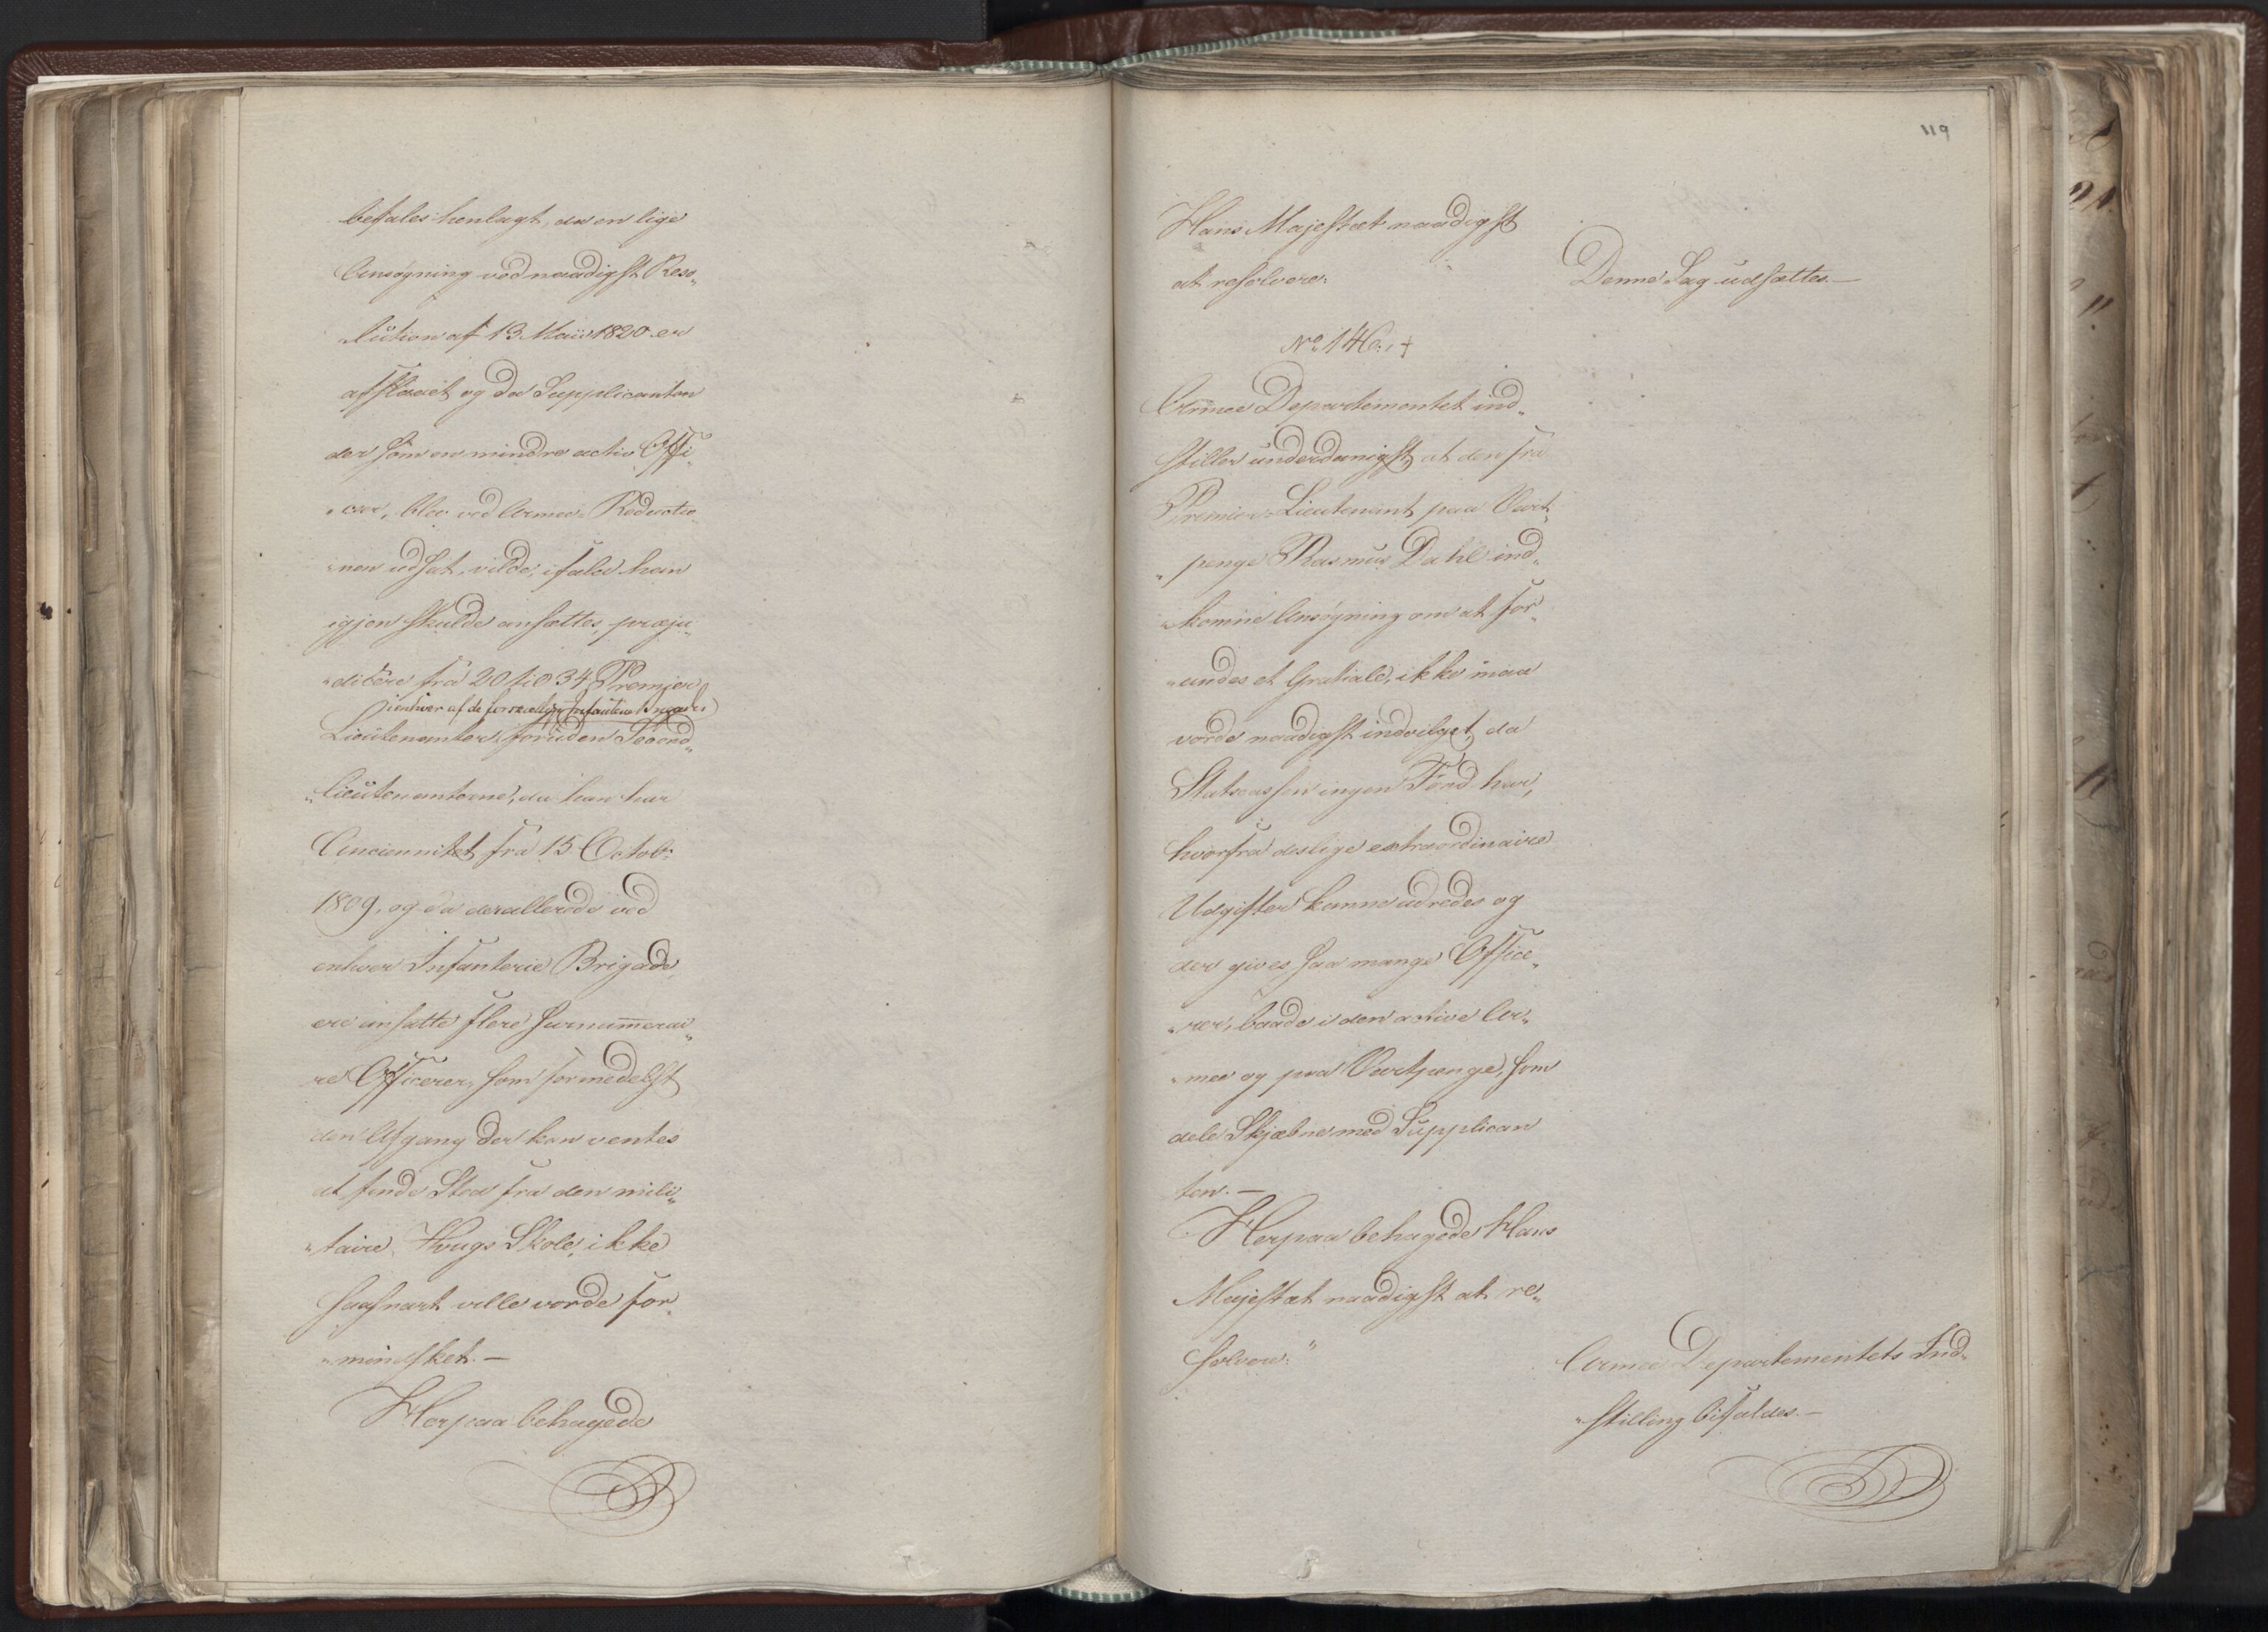 befales henlagt, da en lige
Ansøgning ved naadigst Reso„
„lution af 13 Maii 1820 er
afslaaet og da Supplicanten
der som en mindre activ Offi„
„ceer, blev ved Armee-Reductio„
„nen udsat, vilde, ifald han
igjen skulde ansættes, præju„
„dicere fra 20 til 34 Premier
i enhver af de forskellige Infanterie Brigader
Lieutenanter foruden Second„
„lieutenanterne, da han har
Anciennitet fra 15 Octobr:
1809, og da der allerede ved
enhver Infanterie Brigade
ere ansatte flere surnummerai„
re Officerer, som formedelst
den Afgang der kan ventes
at finde Sted fra den mili„
„taire Høugs Skole, ikke
saasnart ville vorde for„
„mindsket. —
Herpaa behagede
119
Hans Majestæt naadigst
at resolvere:
Denne Sag udsættes. —
No 146. +
Armee Departementet ind„
stiller underdanigst at den fra
Premier-Lieutenant paa Vart„
„penge Rasmus Dahl ind„
„komne Ansøgning om at for„
„undes et Gratiale, ikke maa
vorde naadigst indvilget, da
Statscassen ingen Fond har,
hvorfra deslige extraordinaire
Udgifter kunne udredes og
der gives saa mange Office„
„rer, baade i den active Ar„
„mee og paa Vartpenge, som
dele Skjæbne med Supplican
ten. —
Herpaa behagede Hans
Majestæt naadigst at re„
solvere:"
Armee Departementets Ind„
„stilling bifaldes. —